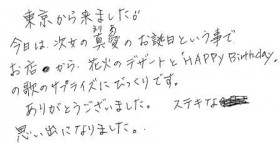 東京から来ました。
今日は、次女の真愛のお誕日という事で
お店から、花火のデザートと、HAPPY Birthday.
の歌のサプライズにびっくりです。
ありがとうございました。 ステキな
思い出になりました。